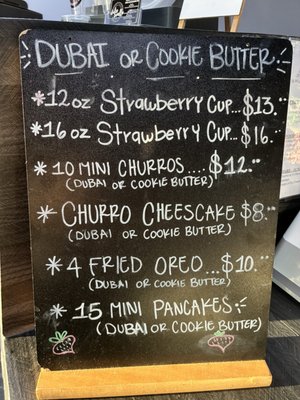 DUBAI OR COOKIE BUTTER
*12oz Strawberry Cup...$13.
*16oz Strawberry Cup...$16.
*10 MINI CHURROS....$12.
(DUBAI OR COOKIE BUTTER)
*CHURRO CHEESCAKE $8.
(DUBAI OR COOKIE BUTTER)
*4 FRIED OREO...$10.
(DUBAI OR COOKIE BUTTER)
*15 MINI PANCAKES
(DUBAI OR COOKIE BUTTER)